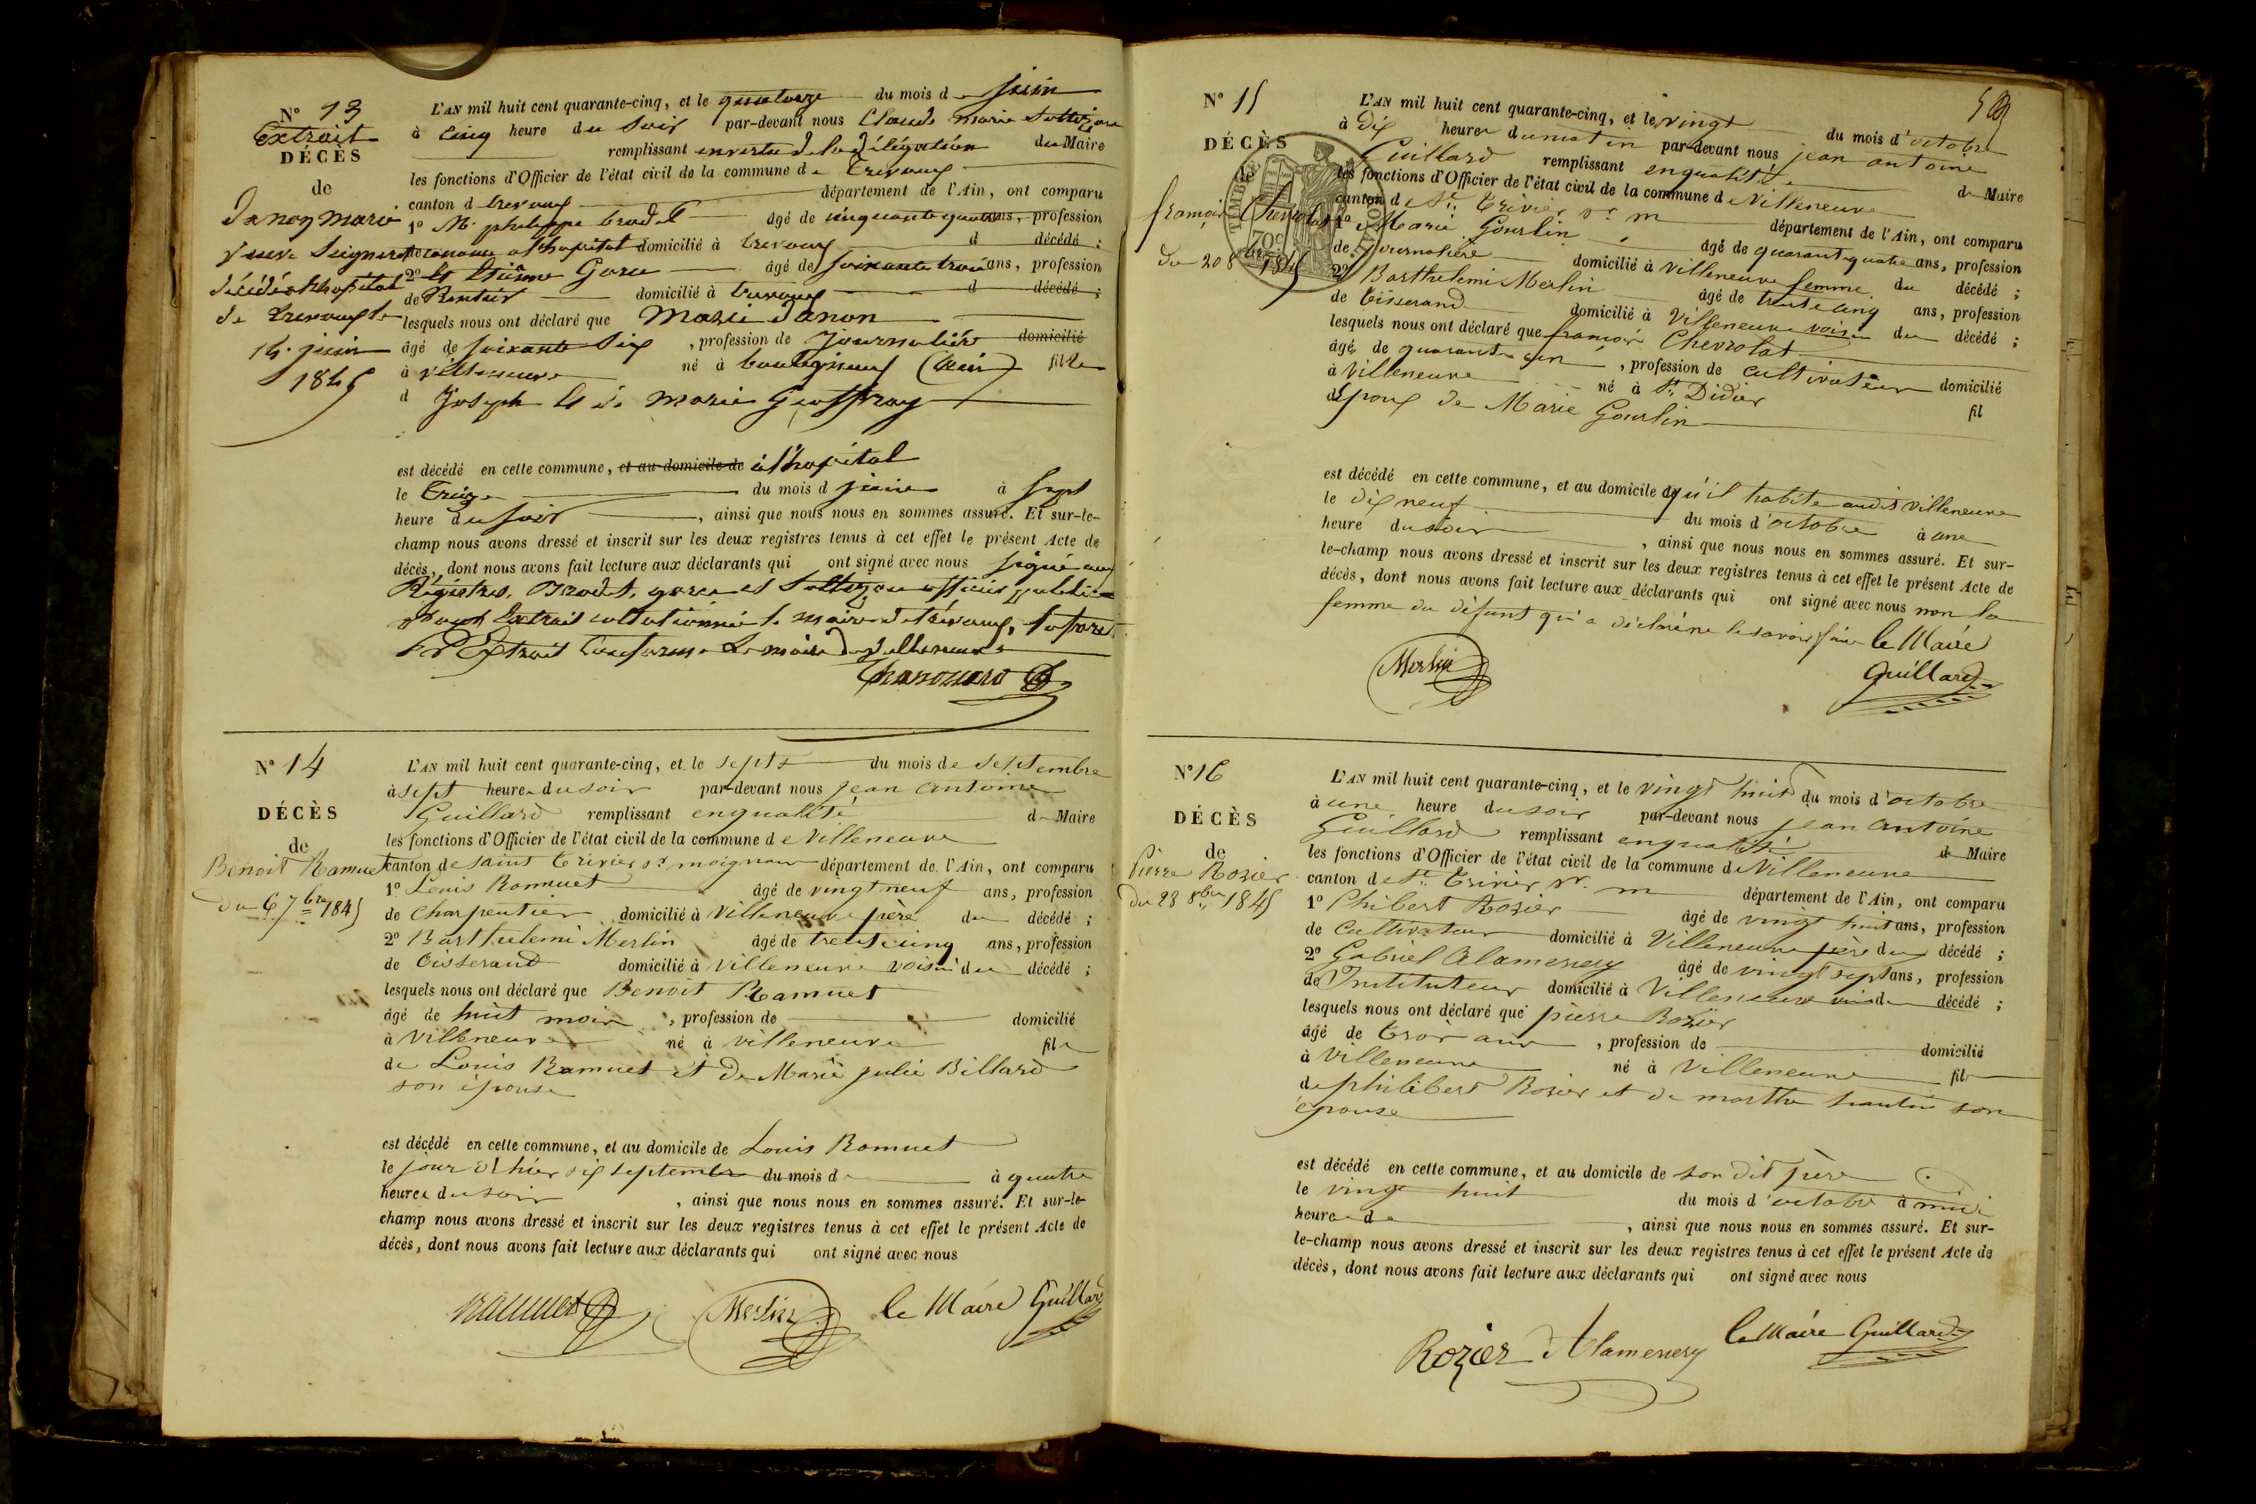 N° 13
Extrait
DÉCÈS
de
Danon marie
veuve
décédée à l'hopital
de trevoux le
14 juin
1845
L'AN mil huit cent quarante-cinq, et le quatorze du mois de juin
à cinq heure du soir par-devant nous Claude marie
remplissant en vertu de la délégation du Maire
les fonctions d'Officier de l'état civil de la commune de Trevoux
canton d trevoux département de l'Ain, ont comparu
1° M. philippe âgé de cinquante quatre ans, profession
de à l'hopital domicilié à trevoux d décédé ;
2° et Etiënne Garce âgé de soixante trois ans, profession
de Rentier domicilié à trevoux d décédé ;
lesquels nous ont déclaré que Marie Danon
âgé de soixante Six , profession de Journalière domicilié
à villeneuve né à bouligneux (Ain) fille
d Joseph et de marie Geoffray
est décédé en cette commune, et au domicile de à l'hopital
le treize du mois d juin à Sept
heure du soir , ainsi que nous nous en sommes assuré. Et sur-le-
champ nous avons dressé et inscrit sur les deux registres tenus à cet effet le présent Acte de
décès, dont nous avons fait lecture aux déclarants qui ont signé avec nous signé aux
Régistres, garce et officier public
pour Extrait collationné le maire de trévoux,
Pr Extrait Conforme Le maire de villeneuve
N° 14
DÉCÈS
de
Benoit Ramuet
du 6 7bre 1845
L'AN mil huit cent quarante-cinq, et le sept du mois de septembre
à sept heure du soir par-devant nous jean antoine
Guillard remplissant en qualité de Maire
les fonctions d'Officier de l'état civil de la commune de Villeneuve
canton de saint trivier sr moignans département de l'Ain, ont comparu
1° Louis Ramuet âgé de vingt neuf ans, profession
de charpentier domicilié à Villeneuve père du décédé ;
2° Barthelemi Merlin âgé de trente cinq ans, profession
de tisserand domicilié à villeneuve voisin du décédé ;
lesquels nous ont déclaré que Benoit Ramuet
âgé de huit mois , profession de domicilié
à villeneuve né à villeneuve fils
de Louis Ramuet et de Marie julie Billard
son épouse
est décédé en cette commune, et au domicile de Louis Ramuet
le jour d'hier six septembre du mois de à quatre
heure du soir , ainsi que nous nous en sommes assuré. Et sur-le-
champ nous avons dressé et inscrit sur les deux registres tenus à cet effet le présent Acte de
décès, dont nous avons fait lecture aux déclarants qui ont signé avec nous
Ramuet Merlin le Maire Guillard
N° 15
DÉCÈS
de
françois Chevrolat
du 20 8bre 1845
TIMBRE NATIONAL
70c
L'AN mil huit cent quarante-cinq, et le vingt du mois d'octobre
à dix heure du matin par-devant nous jean antoine
Guillard remplissant en qualité de Maire
les fonctions d'Officier de l'état civil de la commune de Villeneuve
canton de St. Trivier sr m département de l'Ain, ont comparu
1° Marie Gourlin âgé de quarante quatre ans, profession
de journalière domicilié à villeneuve femme du décédé ;
2° Barthelemi Merlin âgé de trente cinq ans, profession
de tisserand domicilié à Villeneuve voisin du décédé ;
lesquels nous ont déclaré que françois Chevrolat
âgé de quarante un , profession de cultivateur domicilié
à villeneuve né à St. Didier fil
d Epoux de Marie Gourlin
est décédé en cette commune, et au domicile qu'il habite audit villeneuve
le dix neuf du mois d'octobre à une
heure du soir , ainsi que nous nous en sommes assuré. Et sur-
le-champ nous avons dressé et inscrit sur les deux registres tenus à cet effet le présent Acte de
décès, dont nous avons fait lecture aux déclarants qui ont signé avec nous non la
femme du défunt qui a déclaré ne le savoir faire le Maire
Merlin Guillard
N° 16
DÉCÈS
de
Pierre Rozier
du 28 8bre 1845
L'AN mil huit cent quarante-cinq, et le vingt huit du mois d'octobre
à une heure du soir par-devant nous jean antoine
Guillard remplissant en qualité de Maire
les fonctions d'Officier de l'état civil de la commune de Villeneuve
canton de St. Trivier sr. m département de l'Ain, ont comparu
1° Philibert Rozier âgé de vingt huit ans, profession
de cultivateur domicilié à Villeneuve père du décédé ;
2° Gabriel Alamercery âgé de vingt sept ans, profession
de Instituteur domicilié à Villeneuve voisin du décédé ;
lesquels nous ont déclaré que pierre Rozier
âgé de trois ans , profession de domicilié
à Villeneuve né à Villeneuve fils
de philibert Rozier et de marthe son
épouse
est décédé en cette commune, et au domicile de son dit père
le vingt huit du mois d'octobre à midi
heure de , ainsi que nous nous en sommes assuré. Et sur-
le-champ nous avons dressé et inscrit sur les deux registres tenus à cet effet le présent Acte de
décès, dont nous avons fait lecture aux déclarants qui ont signé avec nous
Rozier Alamercery le Maire Guillard